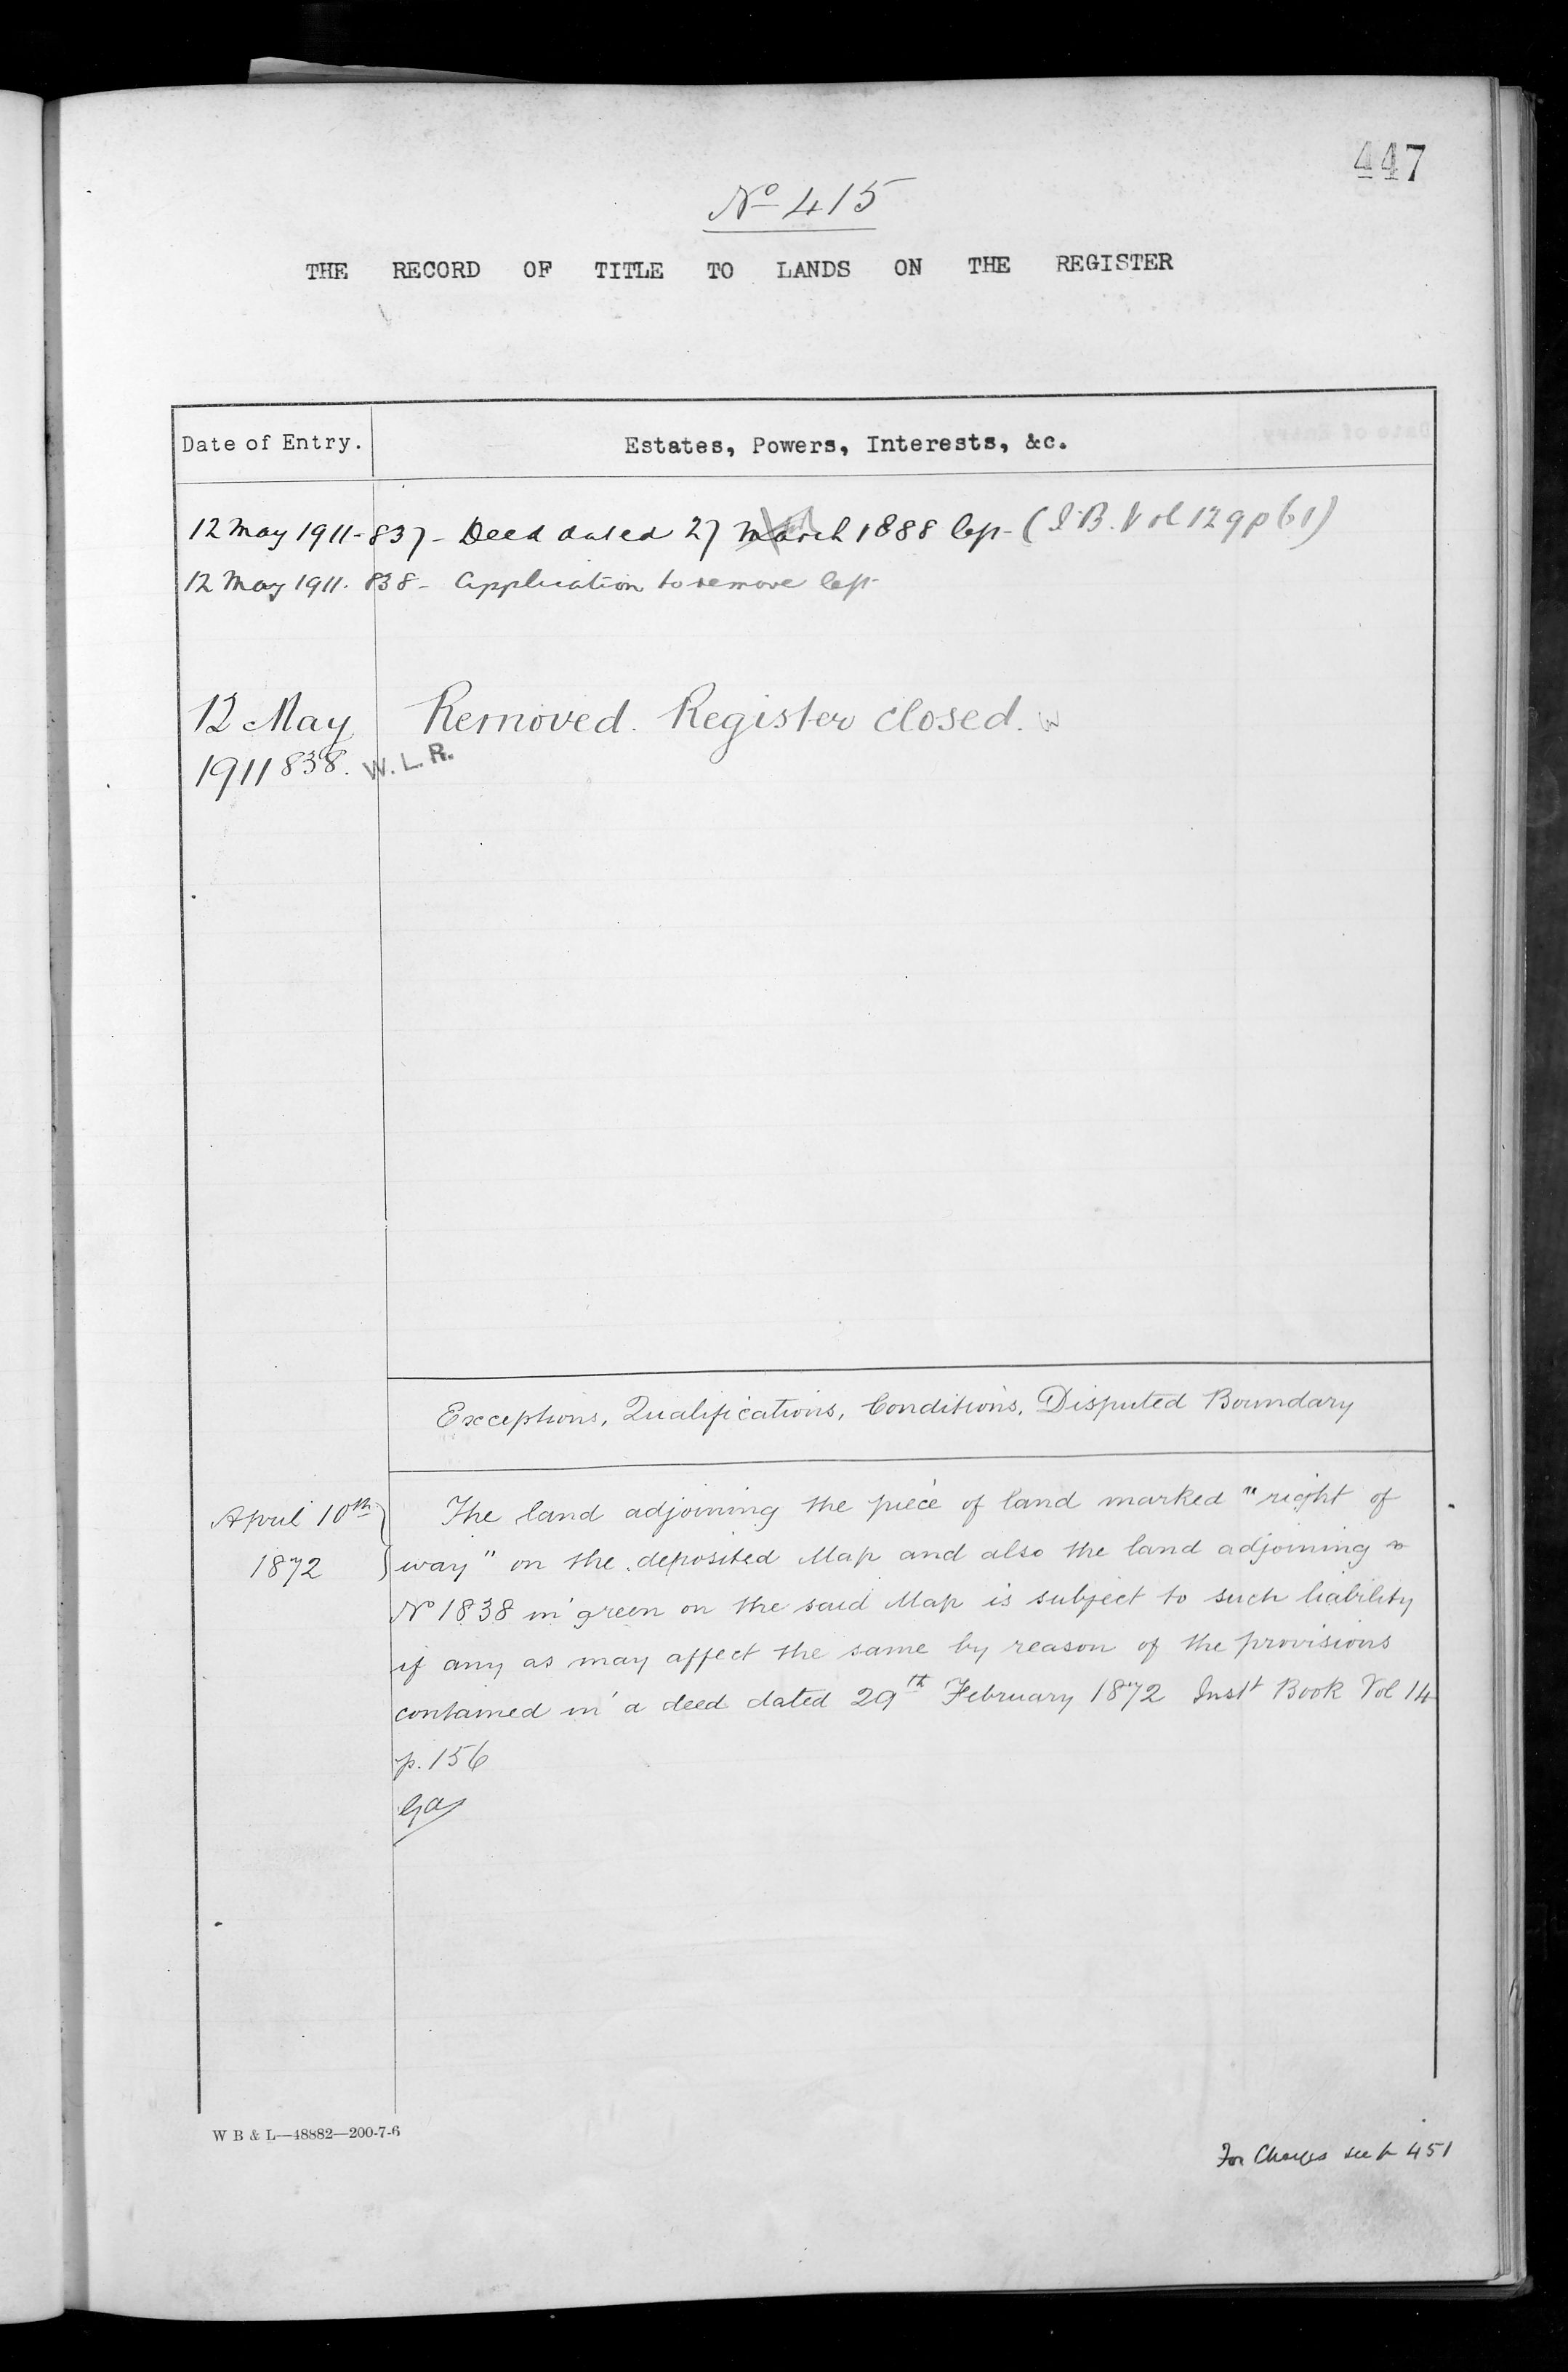 447
No 415
THE RECORD OF TITLE TO LANDS ON THE REGISTER
Date of Entry. Estates, Powers, Interests, &c.
12 May 1911 - 837 - Deed dated 27 March 1888 (I.B. Vol 129 p 61)
12 May 1911. 838 - Application to remove
12 May Removed. Register closed.
1911 838. W. L. R.
Exceptions, Qualifications, Conditions, Disputed Boundary
April 10th The land adjoining the piece of land marked "right of
1872 way" on the deposited Map and also the land adjoining
No 1838 in green on the said Map is subject to such liability
if any as may affect the same by reason of the provisions
contained in a deed dated 29th February 1872 Inst Book Vol 14
p. 156
W B & L—48882—200-7-6
For Charges see p 451